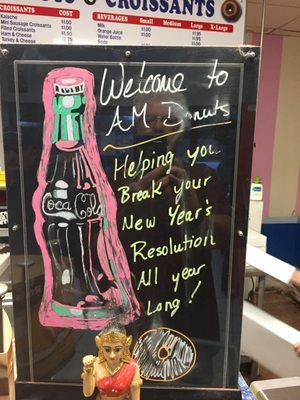 & CROISSANTS
CROISSANTS COST BEVERAGES Small Medium Large X-Large
Kolache
Mini Sausage Croissants
Filled Croissants
Ham & Cheese
Turkey & Cheese
Milk
Orange Juice
Water Bottle
Welcome to
AM Donuts
Helping you
Break your
New Year's
Resolution
All year
Long!
Coca Cola